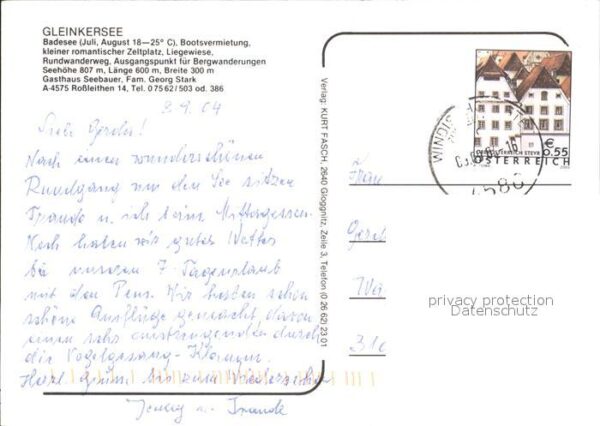 GLEINKERSEE
Badesee (Juli, August 18—25° C), Bootsvermietung,
kleiner romantischer Zeltplatz, Liegewiese,
Rundwanderweg, Ausgangspunkt für Bergwanderungen
Seehöhe 807 m, Länge 600 m, Breite 300 m
Gasthaus Seebauer, Fam. Georg Stark
A-4575 Roßleithen 14, Tel. 0 75 62 / 503 od. 386
2.9.04
Liebe Gerda!
Nach einer wunderschönen
Rundgang um den See sitzen
Traude u. ich beim Mittagessen.
Noch haben wir gutes Wetter
bei unseren 7-Tageurlaub
mit den Pens. Wir haben schon
schöne Ausflüge gemacht davon
einen sehr anstrengenden durch
die Vogelgesang-Klamm.
Herzl. Grüße bis zum Wiedersehen
u. Traude
Verlag: KURT FASCH, 2640 Gloggnitz, Zeile 3, Telefon (0 26 62) 23 01
WINDISCH
4580
€ 0,55
ÖSTERREICH
Frau
Gerd
Wa
privacy protection
Datenschutz